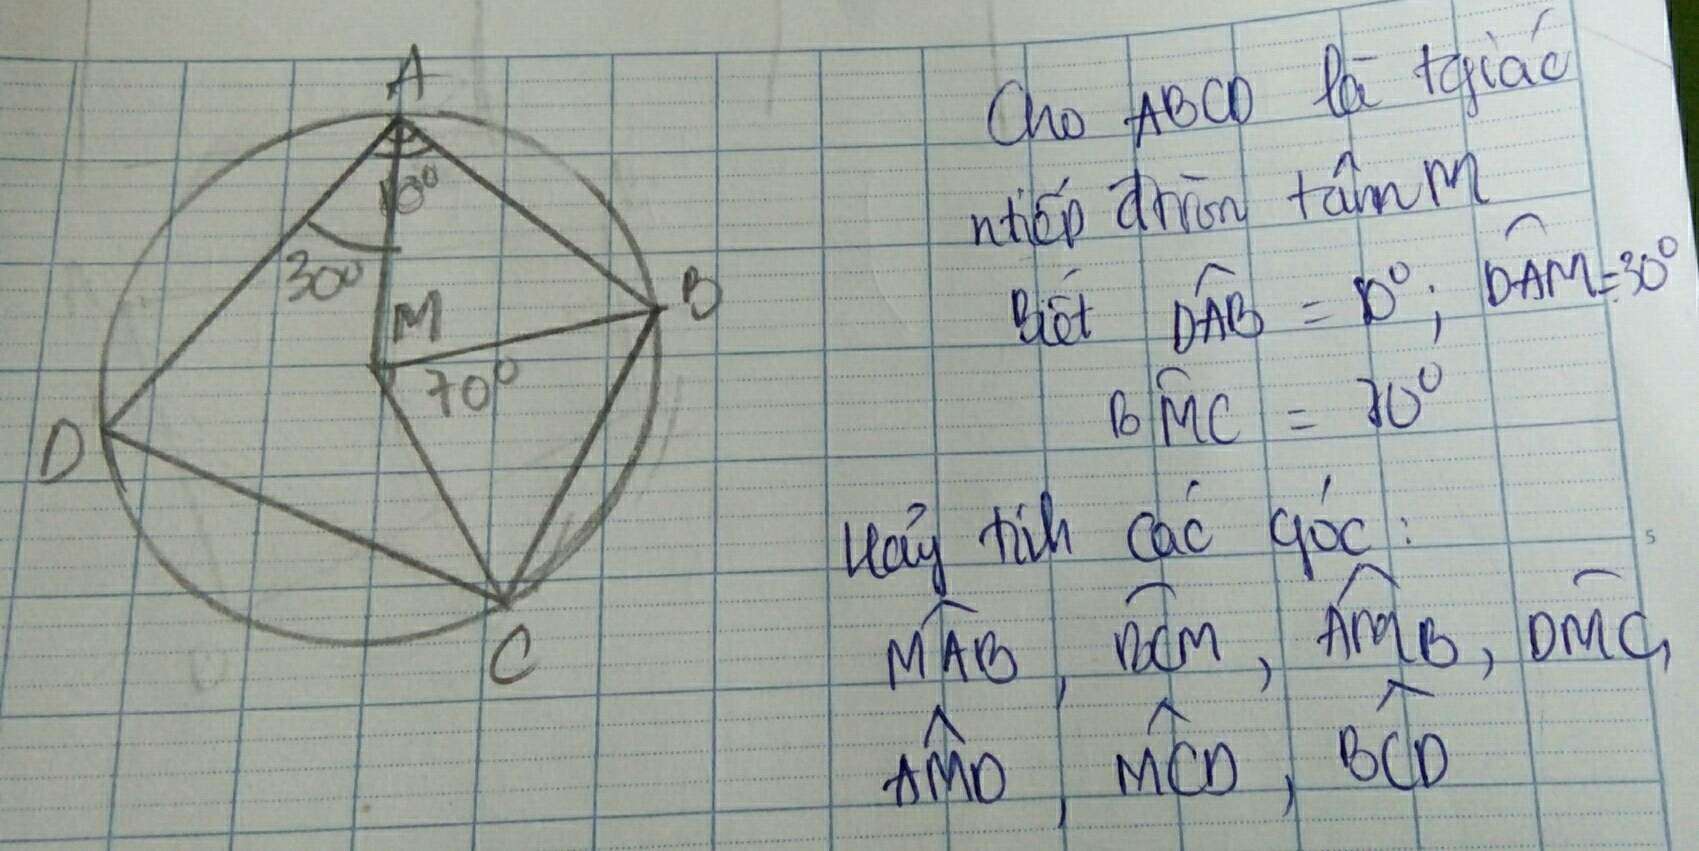 A
30°
M
B
70°
D
C
Cho ABCD là tgiác
ntiếp đtròn tâm M
Biết DAB = ; DAM = 30°
BMC = 70°
Hãy tính các góc:
MAB, BCM, AMB, DMC,
AMD, MCD, BCD
5